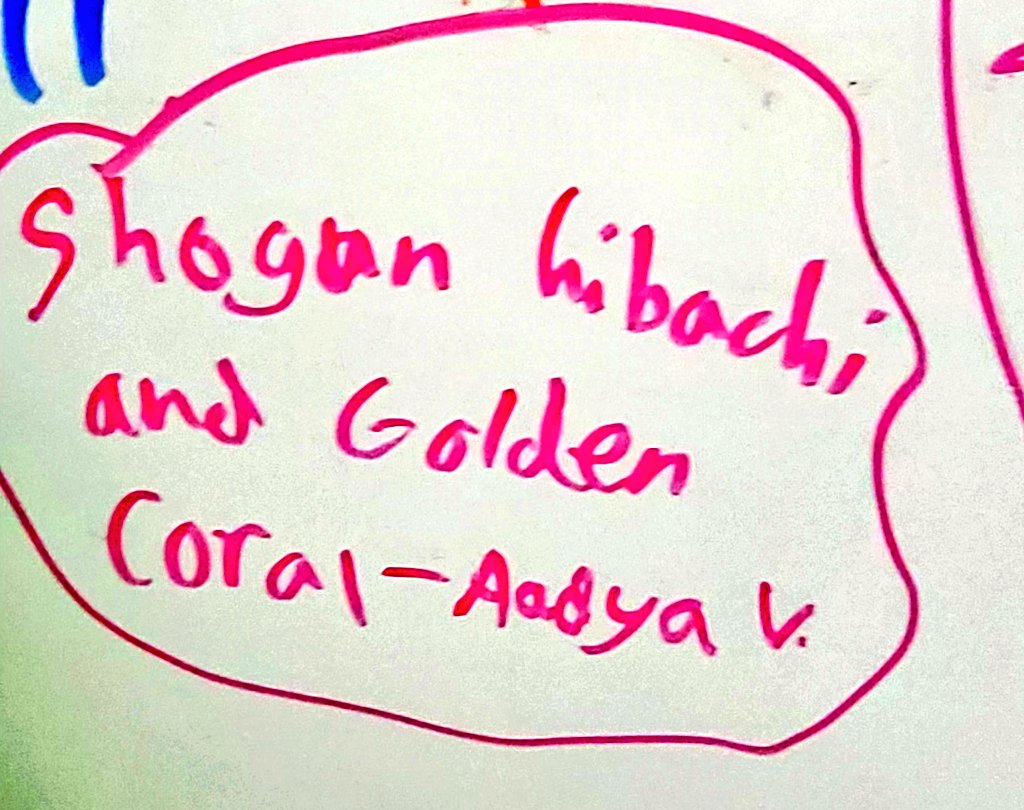 Shogun hibachi
and Golden
Coral-Aadya V.